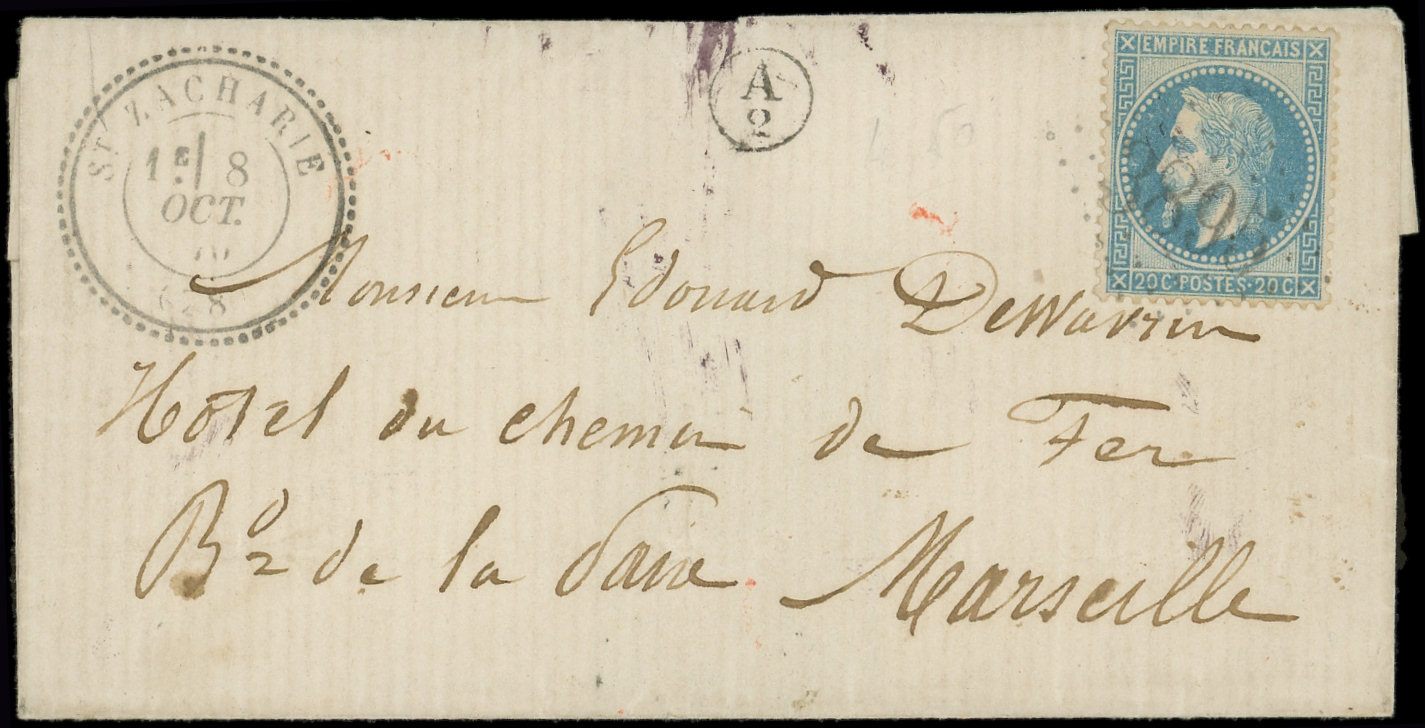 ST ZACHARIE
1E 8
OCT.
70
(28)
A
2
EMPIRE FRANÇAIS
20C·POSTES·20C
Monsieur Edouard DeWavrin
Hôtel du chemin de Fer
Bd de la Paix Marseille